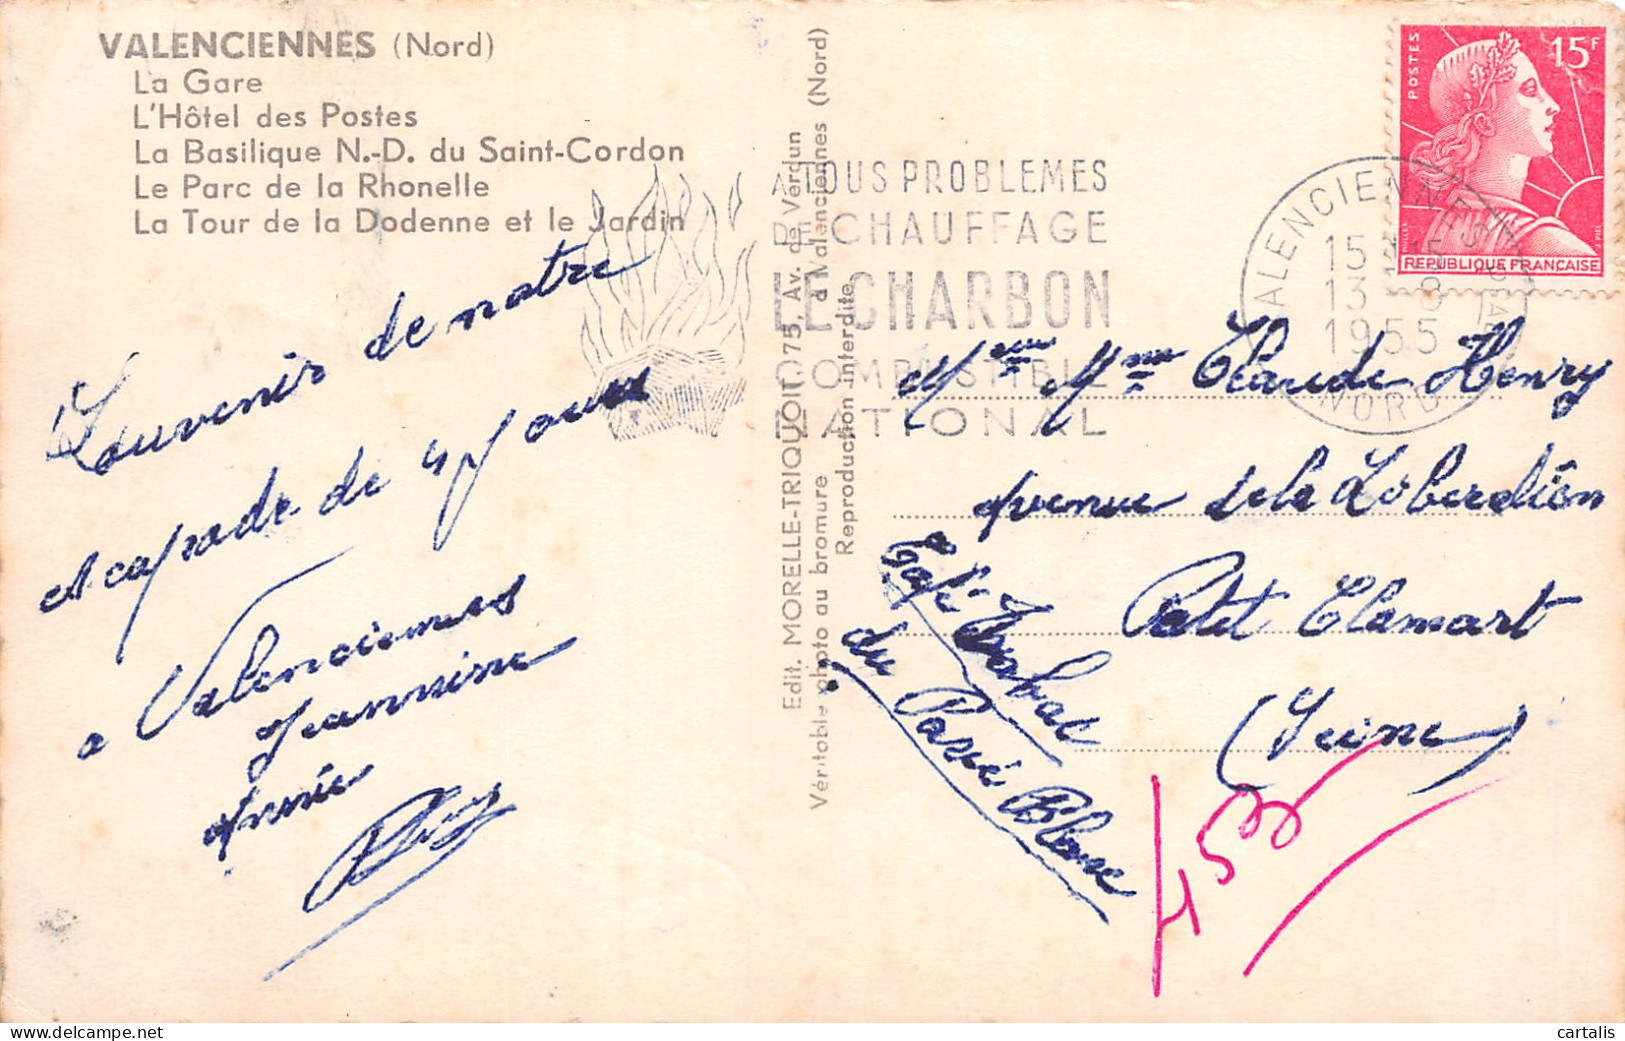 VALENCIENNES (Nord)
La Gare
L'Hôtel des Postes
La Basilique N.-D. du Saint-Cordon
Le Parc de la Rhonelle
La Tour de la Dodenne et le Jardin
Souvenir de notre
escapade de 4 jours
a Valenciennes
Jeannine
Edit. MORELLE-TRIQUOIT, 75, Av. de Verdun
d'Valenciennes (Nord)
Véritable photo au bromure
Reproduction interdite
A TOUS PROBLEMES
DE CHAUFFAGE
LE CHARBON
COMBUSTIBLE
NATIONAL
VALENCIENNES
15 H 15
13
1955
NORD
POSTES
15F
REPUBLIQUE FRANÇAISE
Mme Claude Henry
avenue de la
Petit Clamart
(Seine)
Café Tabac
du Pavé Blanc
cartalis